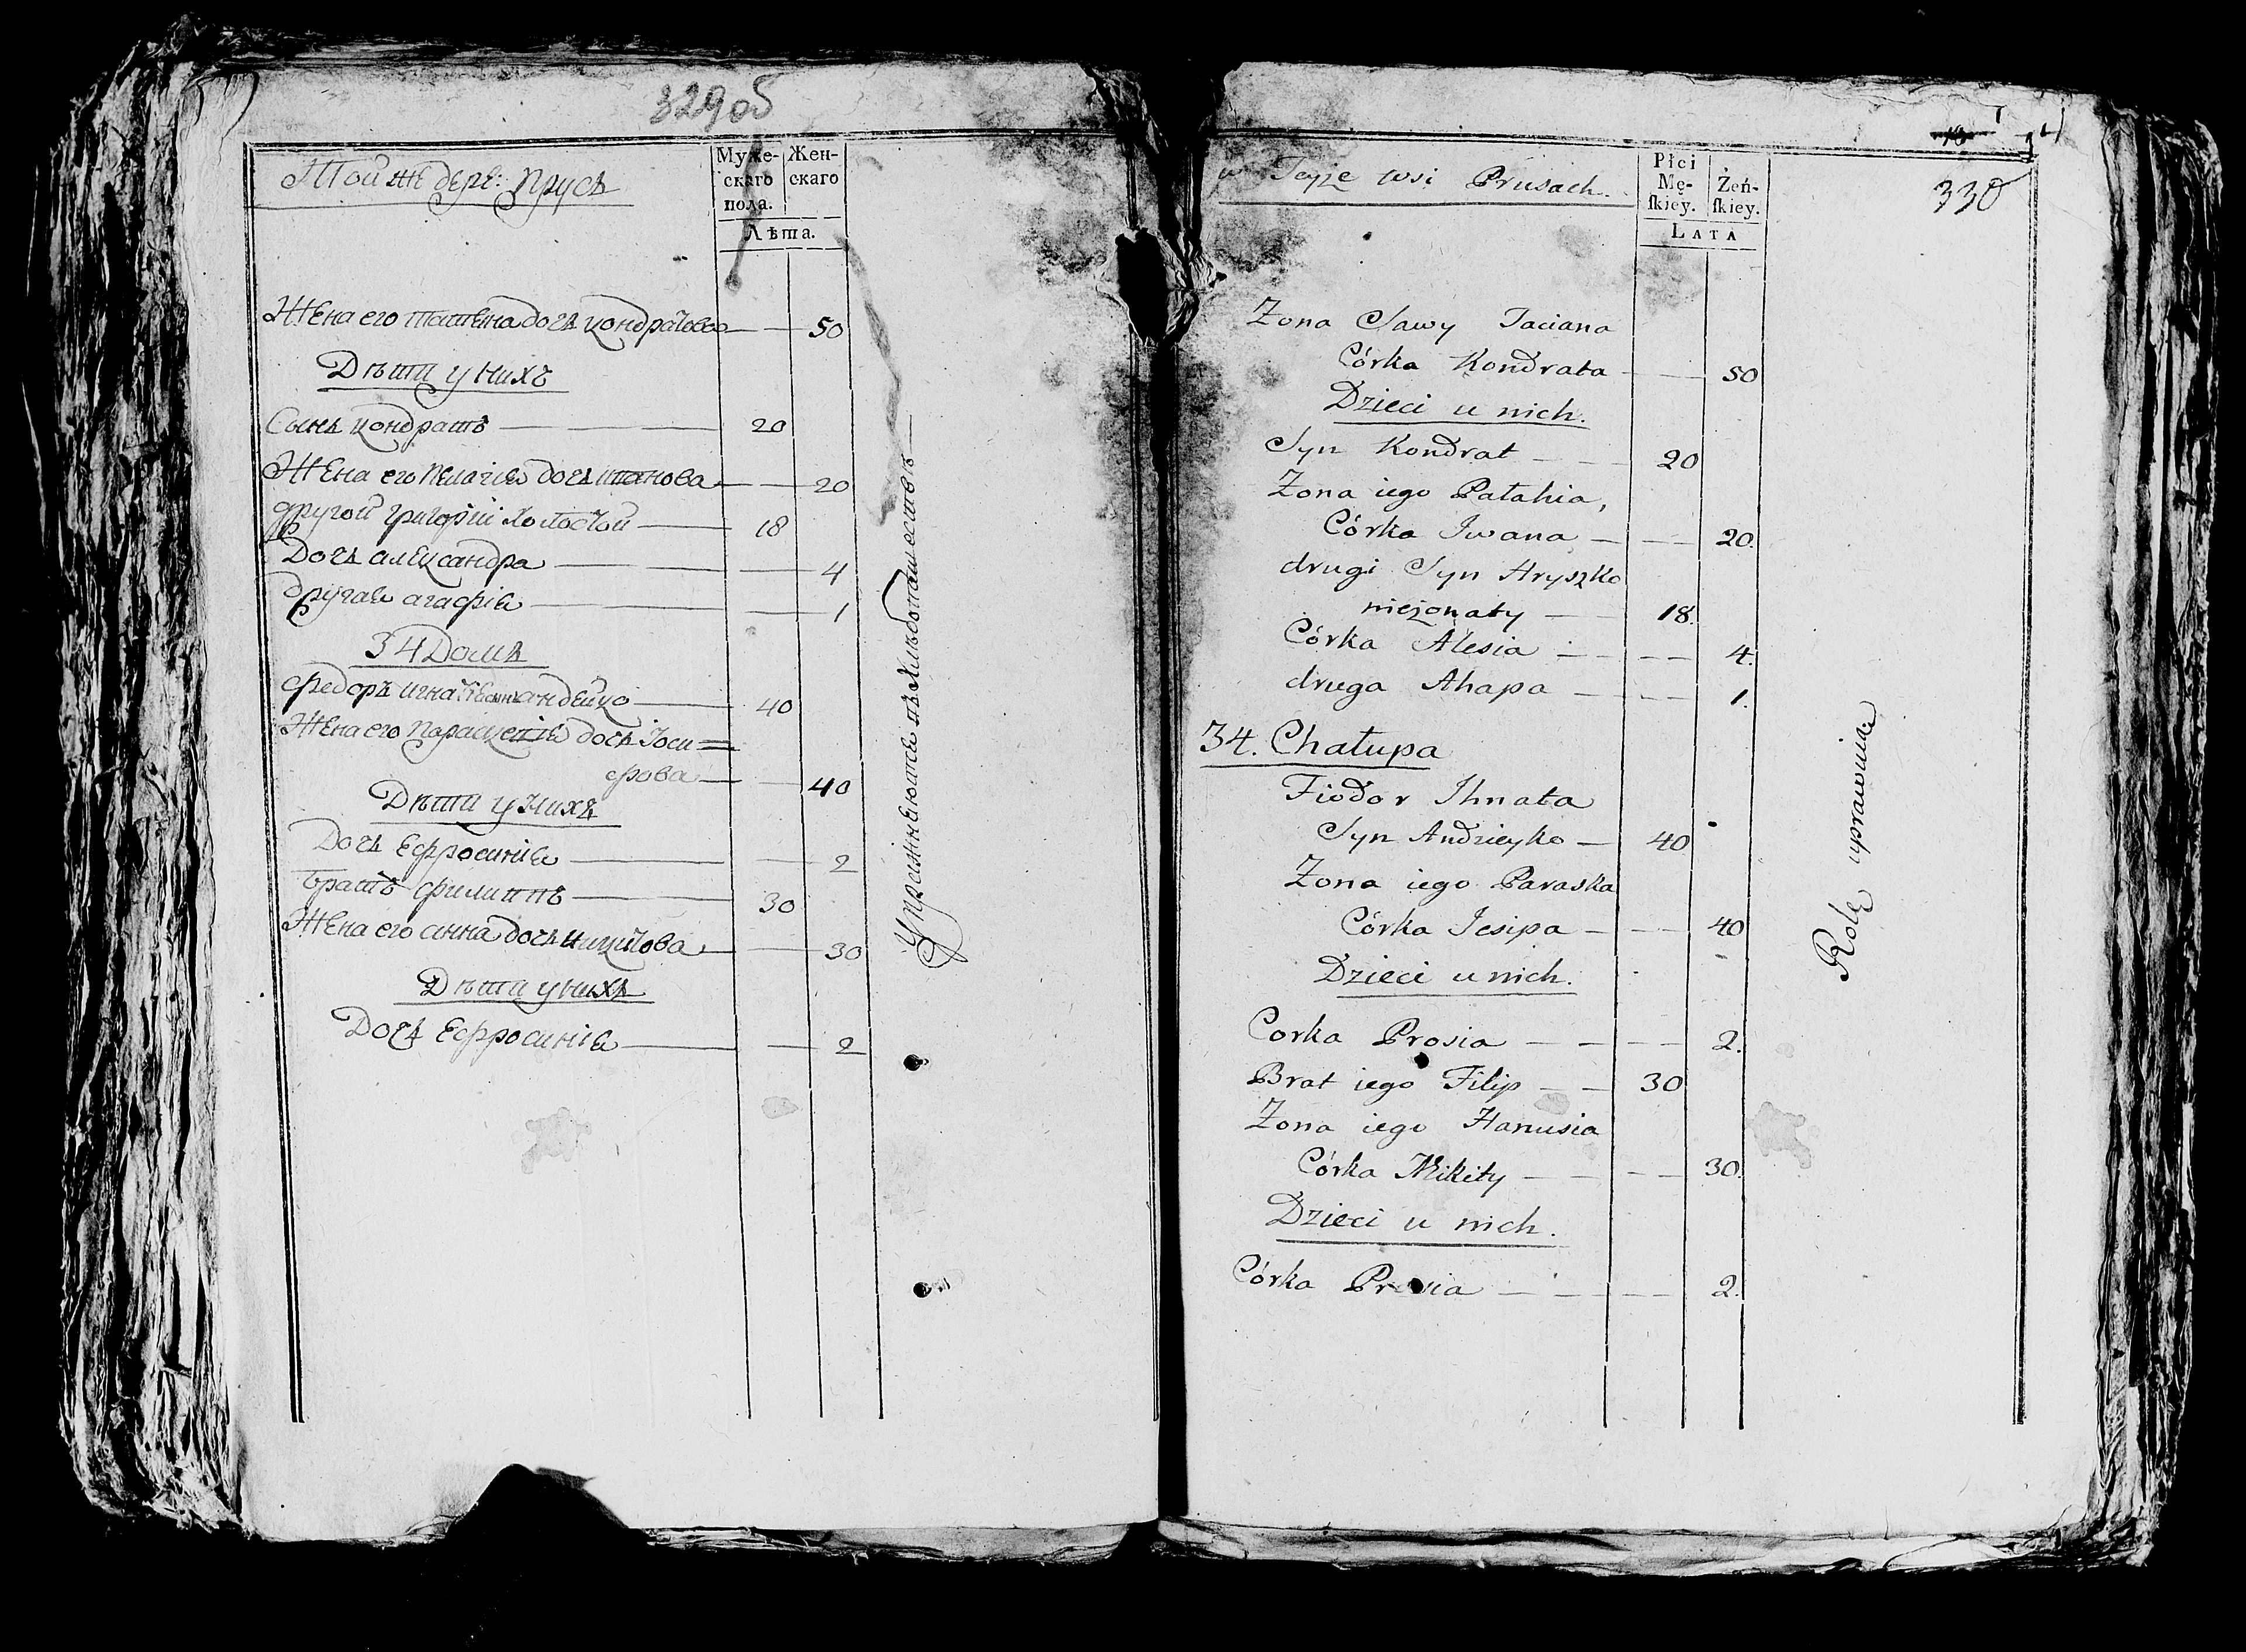 329 об
Той же дере: Прусъ
Муже-
скаго
пола.
Жен-
скаго
Лѣта.
Жена его татьяна дочь кондратова — — 50
Дѣти у нихъ
Сынъ кондратъ — — 20
Жена его Пелагія дочь иванова — — 20
другой григорій холостой — 18
Дочь александра — — 4
другая агафія — — 1
34 Домъ
федоръ игнатьевъ андейко — 40
Жена его Параскевія дочь Іоси=
фова — — 40
Дѣти у нихъ
Дочь Ефросинія — — 2
братъ филиппъ — 30
Жена его анна дочь никитова — — 30
Дѣти у нихъ
Дочь Ефросинія — — 2
Упражняются въ хлебопашествѣ —
w Teyże wsi Prusach.
Płci
Mę-
skiey.
Żeń-
skiey.
LATA
330
Żona Sawy Taciana
Córka Kondrata — — 50
Dzieci u nich.
Syn Kondrat — — 20
Żona iego Pałahia,
Córka Iwana — — 20.
drugi Syn Hryszko
nieżonaty — 18.
Córka Alesia — — 4.
druga Ahapa — — 1.
34. Chałupa
Fiodor Ihnata
Syn Andzieyko — 40
Żona iego Paraska
Córka Jesipa — — 40
Dzieci u nich.
Corka Prosia — — 2.
Brat iego Filip — — 30
Żona iego Hanusia
Córka Mikity — — 30.
Dzieci u nich.
Córka Prosia — — 2.
Rolę uprawuia